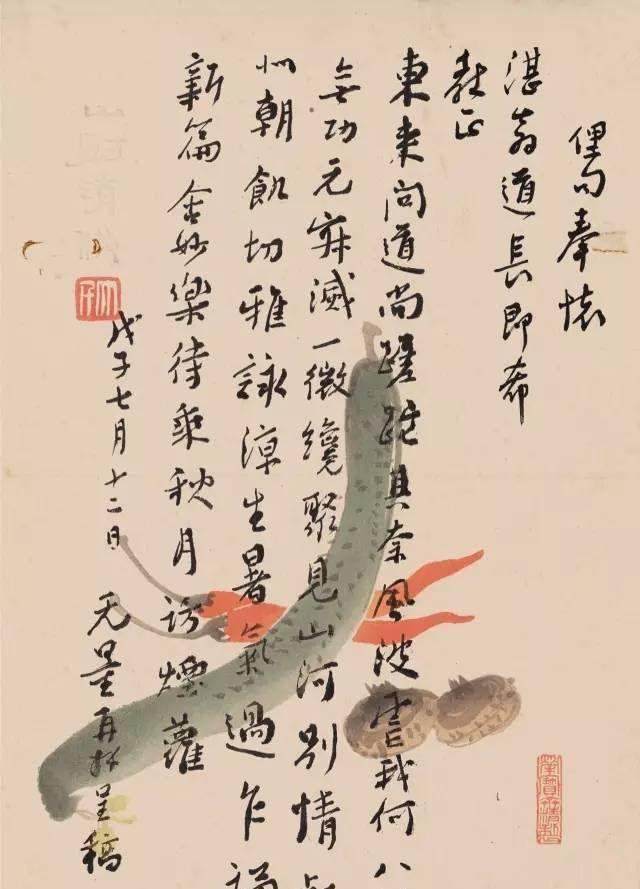 俚句奉懷
湛翁道長即希
教正
東來問道尚蹉跎其奈風波害我何八
無功元寂滅一微纔聚見山河別情
似朝飢切雅詠涼生暑氣過乍
新篇含妙樂待乘秋月訪煙蘿
戊子七月十二日 无量再拜呈稿